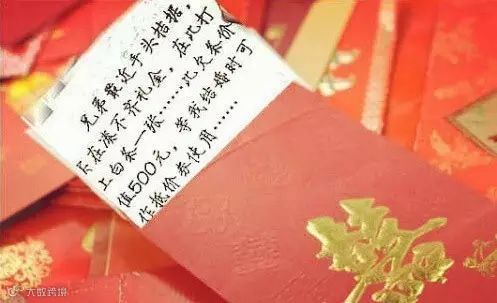 兄弟最近手头拮据，
实在凑不齐礼金，在此打
上白条一张……此欠条价
值500元，等我结婚时可
作抵价券使用……
大数跨境